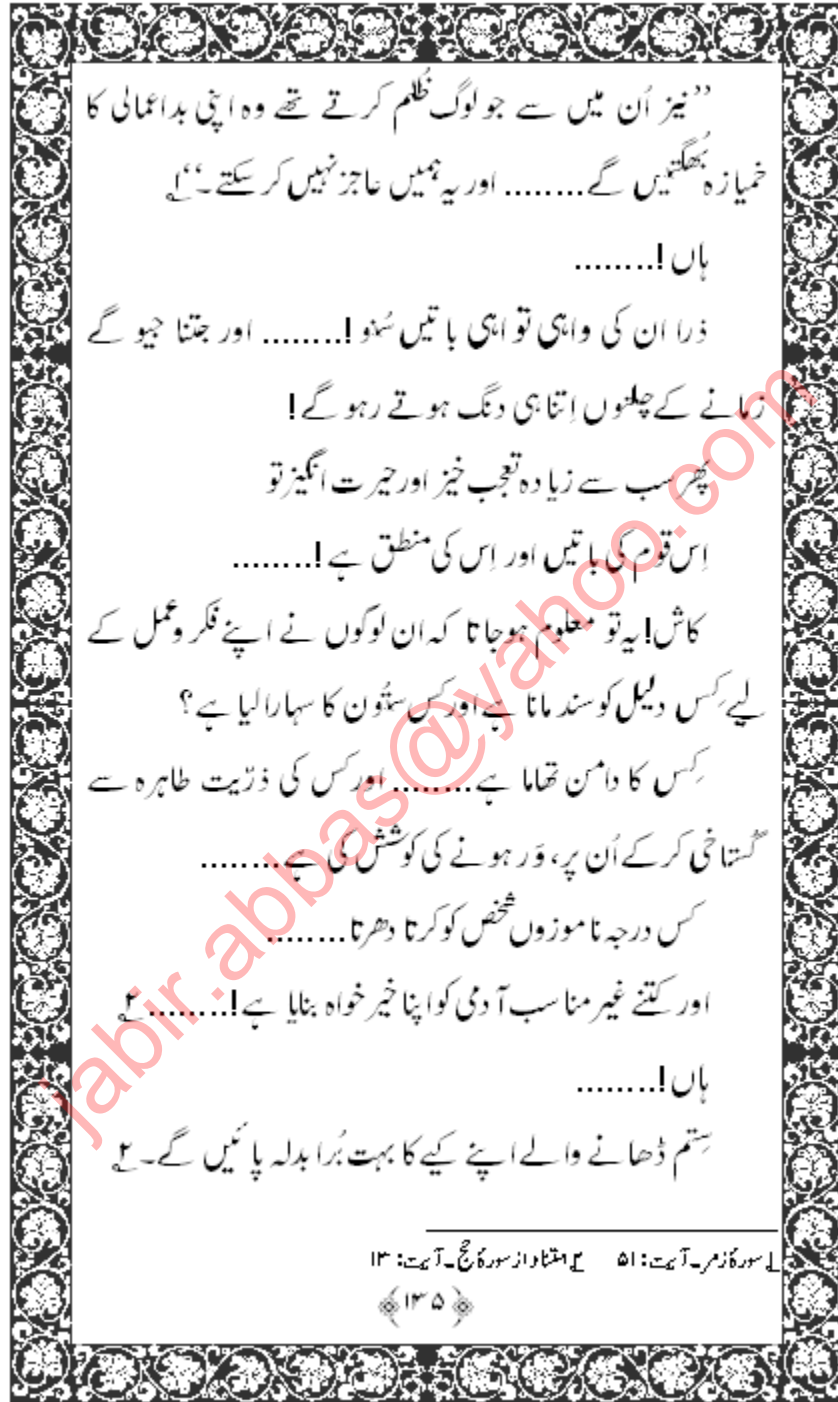 ’’نیز اُن میں سے جو لوگ ظُلم کرتے تھے وہ اپنی بداعمالی کا
خمیازہ بُھگتیں گے........ اور یہ ہمیں عاجز نہیں کر سکتے۔‘‘ ۱؎
ہاں!........
ذرا ان کی واہی تواہی باتیں سُنو!........ اور جتنا جیو گے
زمانے کے چلنوں اِتنا ہی دنگ ہوتے رہو گے!
پھر سب سے زیادہ تعجب خیز اور حیرت انگیز تو
اِس قوم کی باتیں اور اِس کی منطق ہے!........
کاش! یہ تو معلوم ہو جاتا کہ ان لوگوں نے اپنے فکر و عمل کے
لیے کِس دلیل کو سند مانا ہے اور کس ستُون کا سہارا لیا ہے؟
کِس کا دامن تھاما ہے........ اور کس کی ذرّیت طاہرہ سے
گستاخی کر کے اُن پر، وَر ہونے کی کوشش کی ہے........
کس درجہ ناموزوں شخص کو کرتا دھرتا........
اور کتنے غیر مناسب آدمی کو اپنا خیر خواہ بنایا ہے!........ ۲؎
ہاں!........
سِتم ڈھانے والے اپنے کیے کا بہت بُرا بدلہ پائیں گے۔ ۲؎
۱؎ سورۂ زمر۔ آیت: ۵۱ ۲؎ استناد از سورۂ حج۔ آیت: ۱۳
﴿۱۳۵﴾
jabir.abbas@yahoo.com